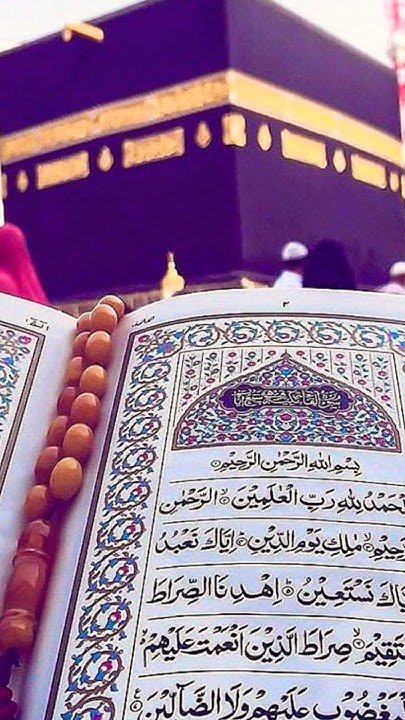 ٢
بِسْمِ اللهِ الرَّحْمٰنِ الرَّحِيْمِ
لْحَمْدُ لِلّٰهِ رَبِّ الْعٰلَمِيْنَ الرَّحْمٰنِ
رَّحِيْمِ مٰلِكِ يَوْمِ الدِّيْنِ اِيَّاكَ نَعْبُدُ
يَّاكَ نَسْتَعِيْنُ اِهْدِنَا الصِّرَاطَ
مُسْتَقِيْمَ صِرَاطَ الَّذِيْنَ اَنْعَمْتَ عَلَيْهِمْ
الْمَغْضُوْبِ عَلَيْهِمْ وَلَا الضَّآلِّيْنَ